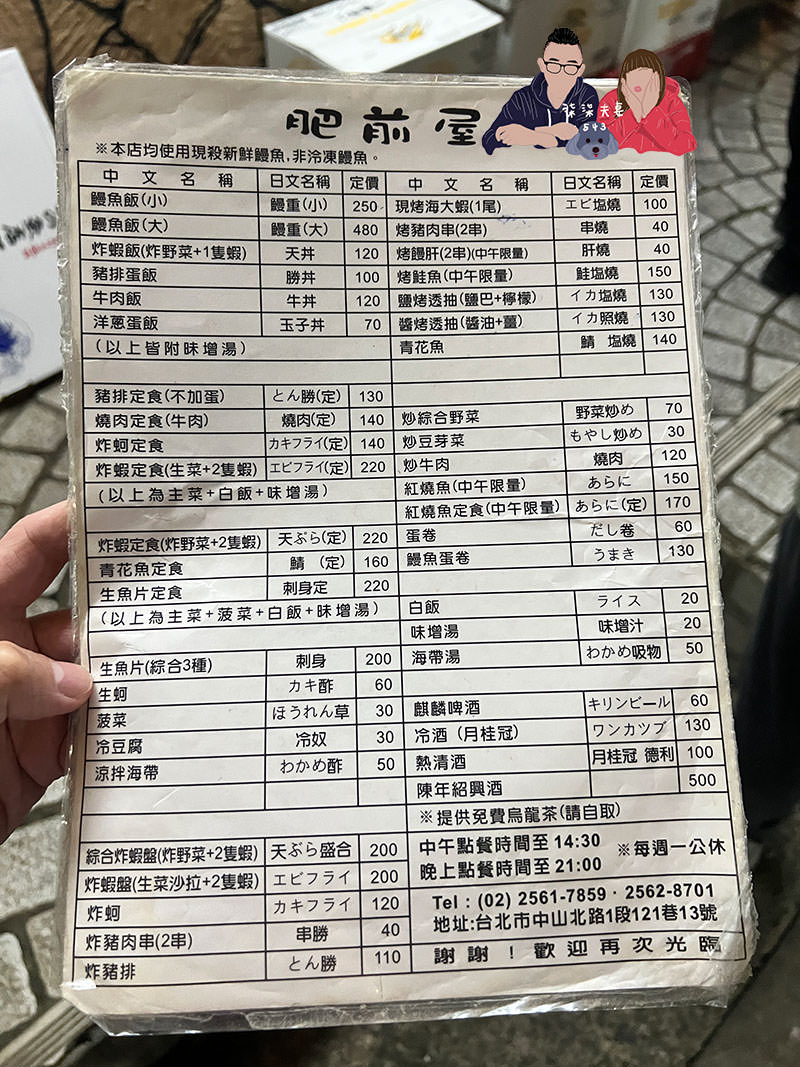 肥前屋
柒柒夫妻
543
※本店均使用現殺新鮮鰻魚,非冷凍鰻魚。
中文名稱 日文名稱 定價
鰻魚飯(小) 鰻重(小) 250
鰻魚飯(大) 鰻重(大) 480
炸蝦飯(炸野菜+1隻蝦) 天丼 120
豬排蛋飯 勝丼 100
牛肉飯 牛丼 120
洋蔥蛋飯 玉子丼 70
(以上皆附味增湯)
豬排定食(不加蛋) とん勝(定) 130
燒肉定食(牛肉) 燒肉(定) 140
炸蚵定食 カキフライ(定) 140
炸蝦定食(生菜+2隻蝦) エビフライ(定) 220
(以上為主菜+白飯+味增湯)
炸蝦定食(炸野菜+2隻蝦) 天ぷら(定) 220
青花魚定食 鯖(定) 160
生魚片定食 刺身定 220
(以上為主菜+菠菜+白飯+味增湯)
生魚片(綜合3種) 刺身 200
生蚵 カキ酢 60
菠菜 ほうれん草 30
冷豆腐 冷奴 30
涼拌海帶 わかめ酢 50
綜合炸蝦盤(炸野菜+2隻蝦) 天ぷら盛合 200
炸蝦盤(生菜沙拉+2隻蝦) エビフライ 200
炸蚵 カキフライ 120
炸豬肉串(2串) 串勝 40
炸豬排 とん勝 110
中文名稱 日文名稱 定價
現烤海大蝦(1尾) エビ塩燒 100
烤豬肉串(2串) 串燒 40
烤饅肝(2串)(中午限量) 肝燒 40
烤鮭魚(中午限量) 鮭塩燒 150
鹽烤透抽(鹽巴+檸檬) イカ塩燒 130
醬烤透抽(醬油+薑) イカ照燒 130
青花魚 鯖 塩燒 140
炒綜合野菜 野菜炒め 70
炒豆芽菜 もやし炒め 30
炒牛肉 燒肉 120
紅燒魚(中午限量) あらに 150
紅燒魚定食(中午限量) あらに(定) 170
蛋卷 だし卷 60
鰻魚蛋卷 うまき 130
白飯 ライス 20
味增湯 味增汁 20
海帶湯 わかめ吸物 50
麒麟啤酒 キリンビール 60
冷酒(月桂冠) ワンカツプ 130
熱清酒 月桂冠 德利 100
陳年紹興酒 500
※提供免費烏龍茶(請自取)
中午點餐時間至 14:30
晚上點餐時間至 21:00
※每週一公休
Tel : (02) 2561-7859 · 2562-8701
地址:台北市中山北路1段121巷13號
謝謝!歡迎再次光臨